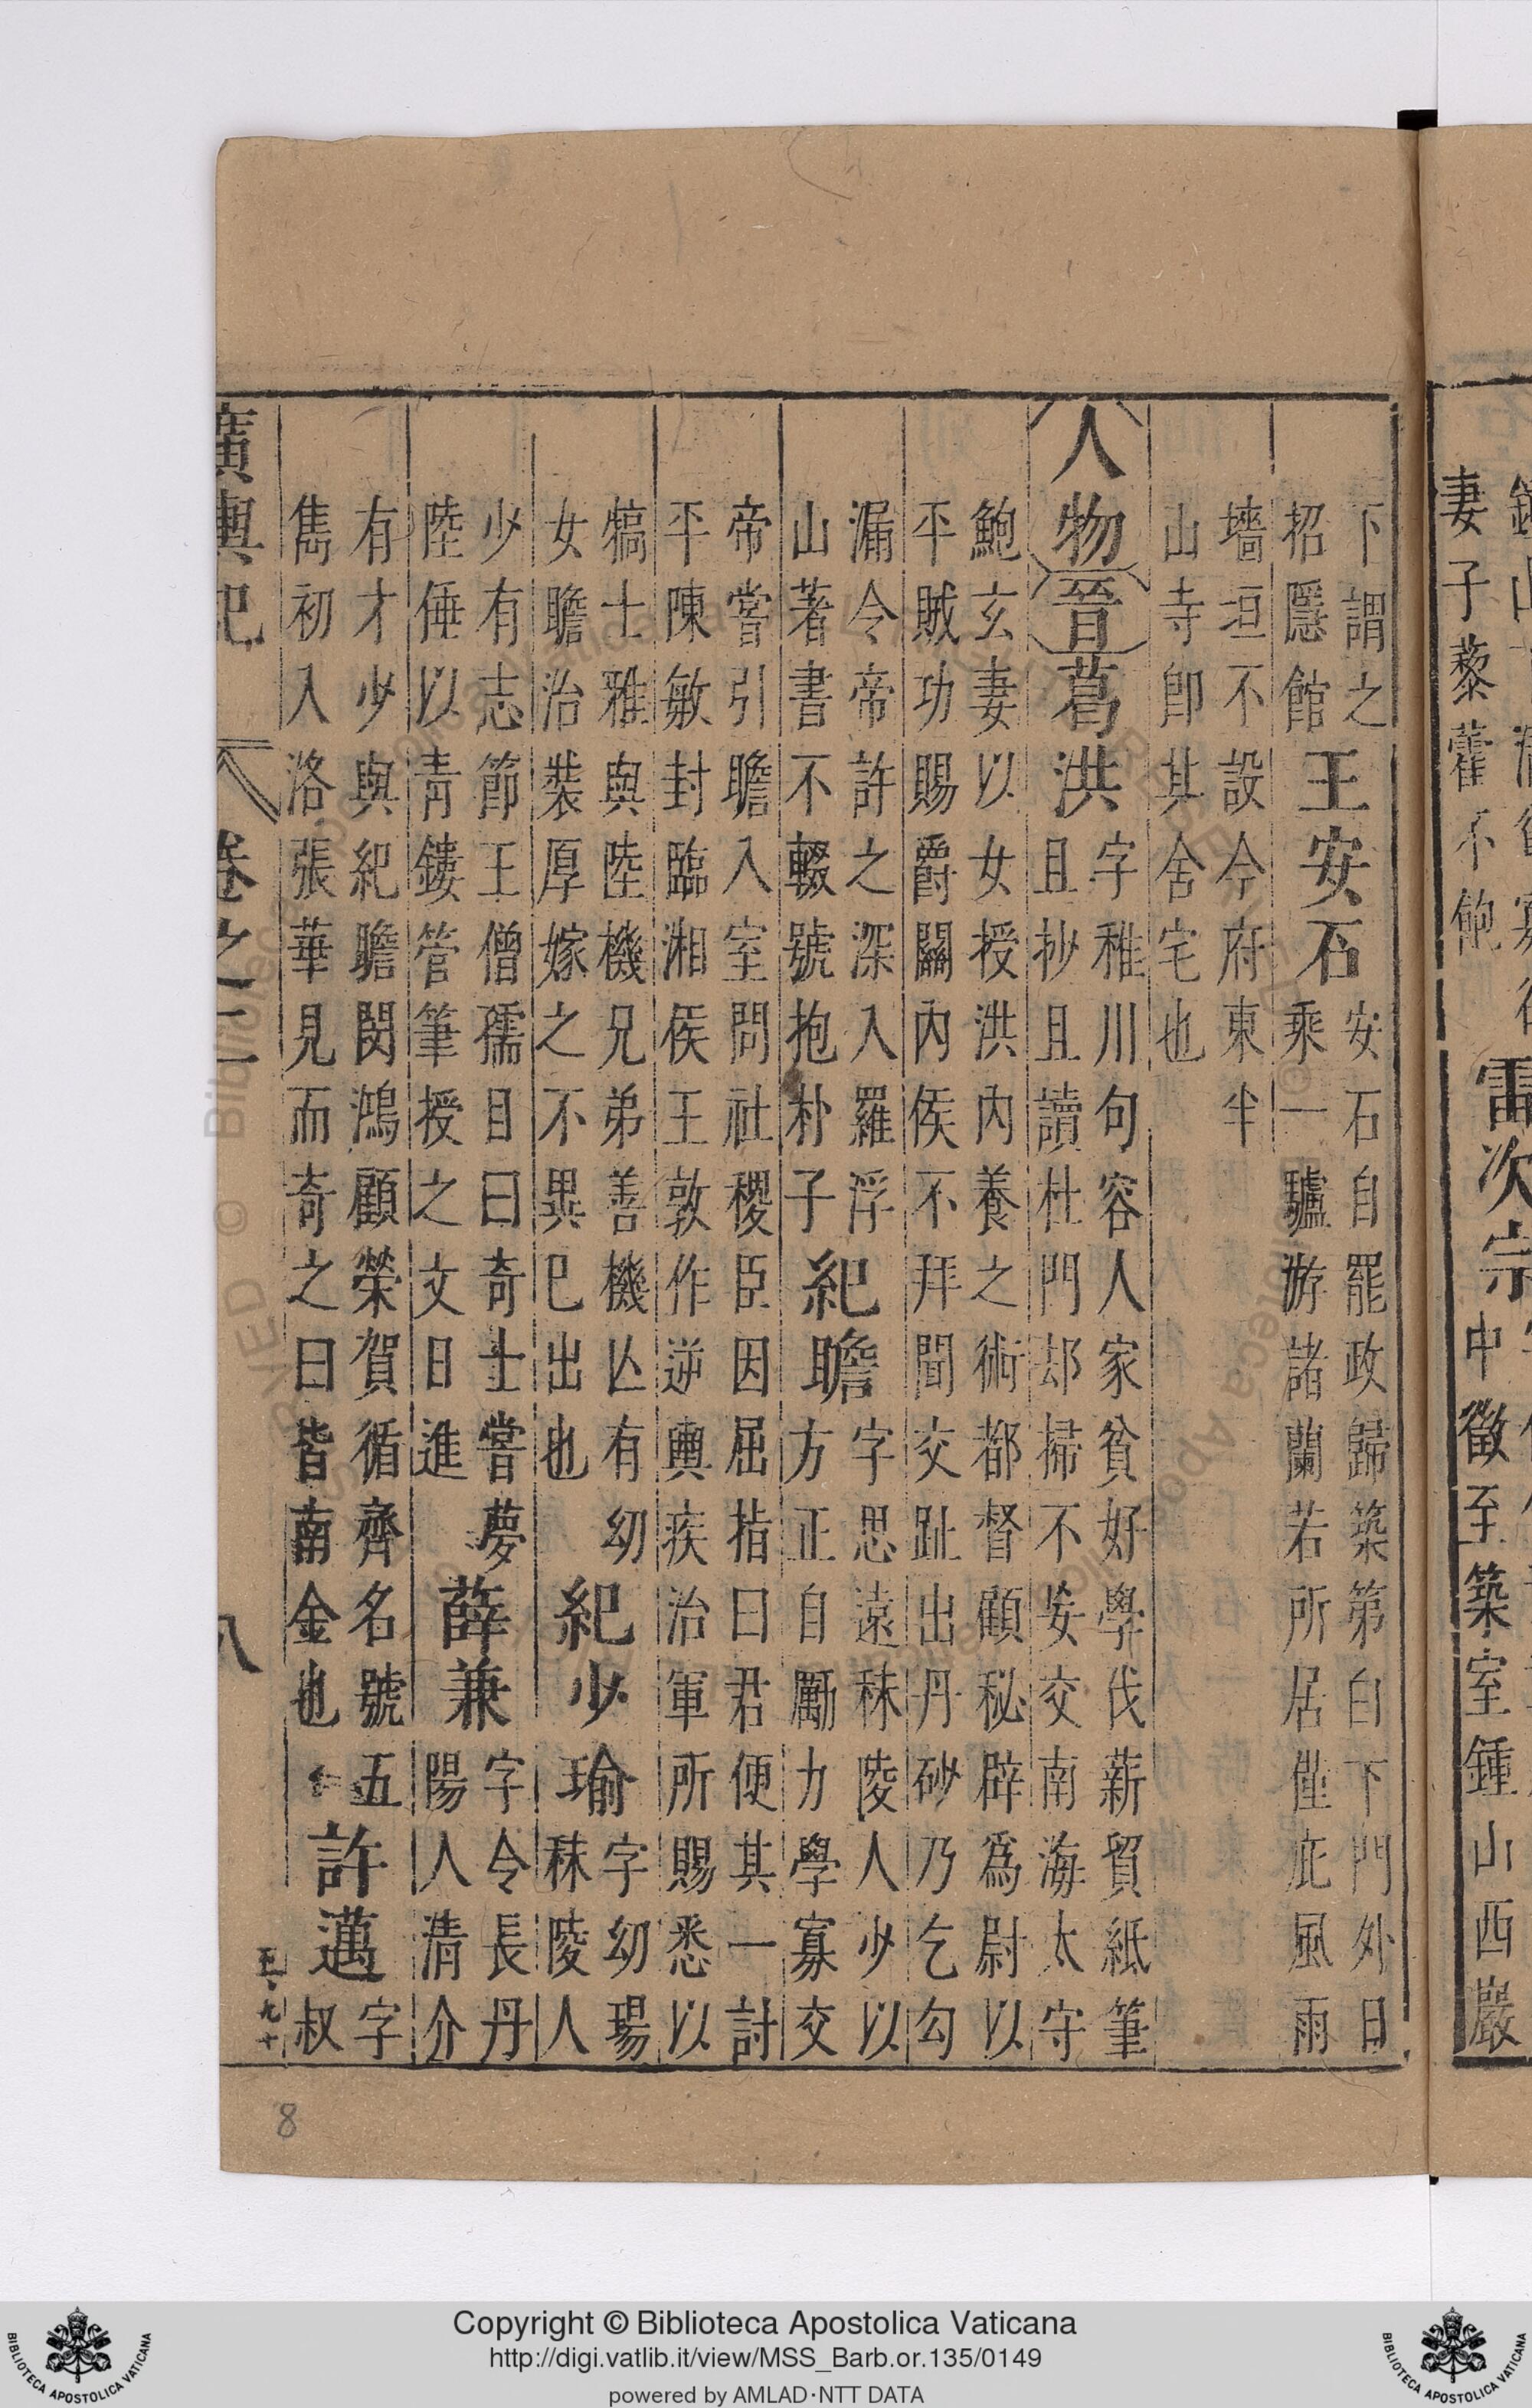 妻子藜藿不飽
雷次宗
中徵至築室鍾山西巖
下謂之
招隱館
王安石
安石自罷政歸築第白下門外日
乘一驢游諸蘭若所居僅庇風雨
墻垣不設今府東半
山寺卽其舍宅也
人物 晉 葛洪
字稚川句容人家貧好學伐薪貿紙筆
且抄且讀杜門却掃不妄交南海太守
鮑玄妻以女授洪內養之術都督顧秘辟爲尉以
平賊功賜爵關內侯不拜聞交趾出丹砂乃乞勾
漏令帝許之深入羅浮
山著書不輟號抱朴子
紀瞻
字思遠秣陵人少以
方正自勵力學寡交
帝嘗引瞻入室問社稷臣因屈指曰君便其一討
平陳敏封臨湘侯王敦作逆輿疾治軍所賜悉以
犒士雅與陸機兄弟善機亾有幼
女瞻治裝厚嫁之不異巳出也
紀少瑜
字幼瑒
秣陵人
少有志節王僧孺目曰奇士嘗夢
陸倕以青鏤管筆授之文日進
薛兼
字令長丹
陽人清介
有才少與紀瞻閔鴻顧榮賀循齊名號五
雋初入洛張華見而奇之曰皆南金也
許邁
字
叔
廣輿記 卷之二 八
8
Copyright © Biblioteca Apostolica Vaticana
http://digi.vatlib.it/view/MSS_Barb.or.135/0149
powered by AMLAD·NTT DATA
BIBLIOTECA APOSTOLICA VATICANA
BIBLIOTECA APOSTOLICA VATICANA